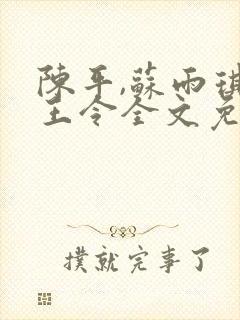 陳平,蘇雨琪
王令全文免
撲就完事了